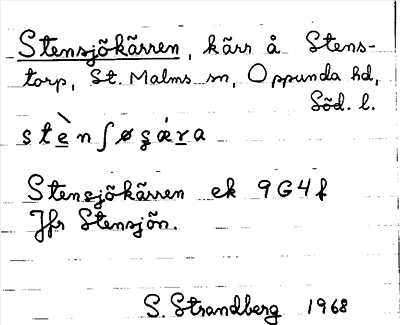 Stensjökärren, kärr å Stens-
torp, St. Malms sn, Oppunda hd,
Söd. l.
stè̱nʃøʂá̱ṟa
Stensjökärren ek 9G4f
Jfr Stensjön.
S. Strandberg 1968